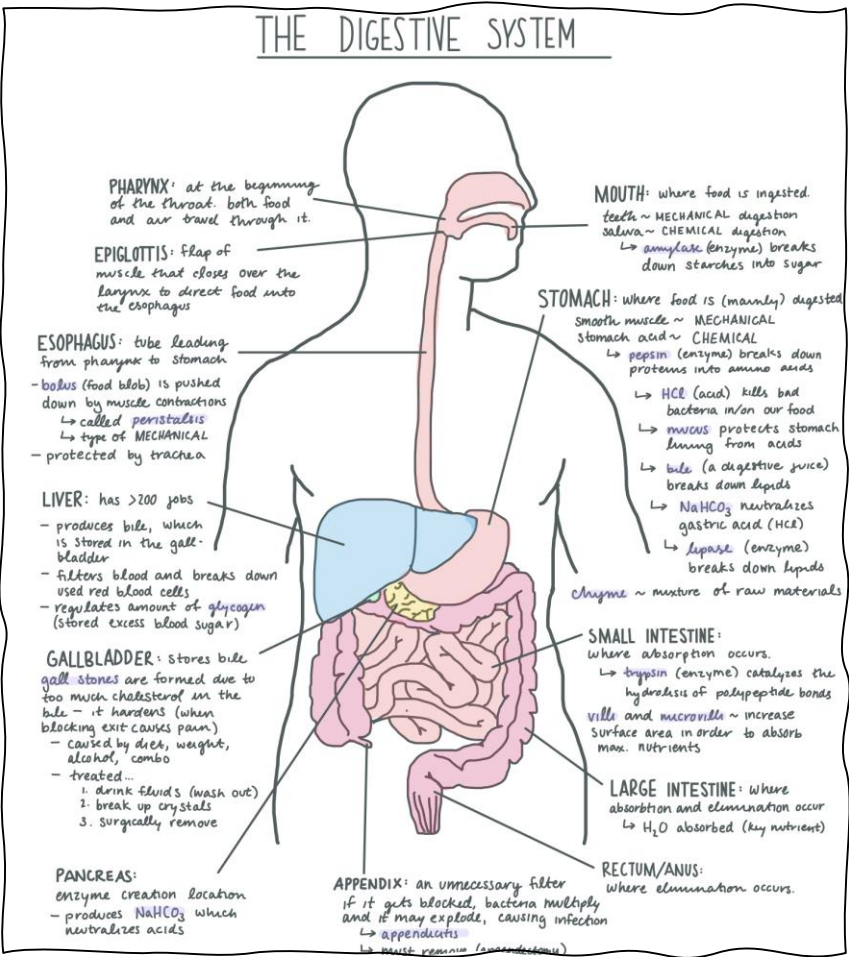 THE DIGESTIVE SYSTEM
PHARYNX: at the beginning
of the throat. both food
and air travel through it.
EPIGLOTTIS: flap of
muscle that closes over the
larynx to direct food into
the esophagus
ESOPHAGUS: tube leading
from pharynx to stomach
- bolus (food blob) is pushed
down by muscle contractions
↳ called peristalsis
↳ type of MECHANICAL
- protected by trachea
LIVER: has >200 jobs
- produces bile, which
is stored in the gall-
bladder
- filters blood and breaks down
used red blood cells
- regulates amount of glycogen
(stored excess blood sugar)
GALLBLADDER: stores bile
gall stones are formed due to
too much cholesterol in the
bile - it hardens (when
blocking exit causes pain)
- caused by diet, weight,
alcohol, combo
- treated...
1. drink fluids (wash out)
2. break up crystals
3. surgically remove
PANCREAS:
enzyme creation location
- produces NaHCO3 which
neutralizes acids
MOUTH: where food is ingested.
teeth ~ MECHANICAL digestion
saliva ~ CHEMICAL digestion
↳ amylase (enzyme) breaks
down starches into sugar
STOMACH: where food is (mainly) digested
smooth muscle ~ MECHANICAL
stomach acid ~ CHEMICAL
↳ pepsin (enzyme) breaks down
proteins into amino acids
↳ HCl (acid) kills bad
bacteria in/on our food
↳ mucus protects stomach
lining from acids
↳ bile (a digestive juice)
breaks down lipids
↳ NaHCO3 neutralizes
gastric acid (HCl)
↳ lipase (enzyme)
breaks down lipids
chyme ~ mixture of raw materials
SMALL INTESTINE:
where absorption occurs.
↳ trypsin (enzyme) catalyzes the
hydrolisis of polypeptide bonds
villi and microvilli ~ increase
surface area in order to absorb
max. nutrients
LARGE INTESTINE: where
absorbtion and elimination occur
↳ H2O absorbed (key nutrient)
RECTUM/ANUS:
where elimination occurs.
APPENDIX: an unnecessary filter
if it gets blocked, bacteria multiply
and it may explode, causing infection
↳ appendicitis
↳ must remove (appendectomy)